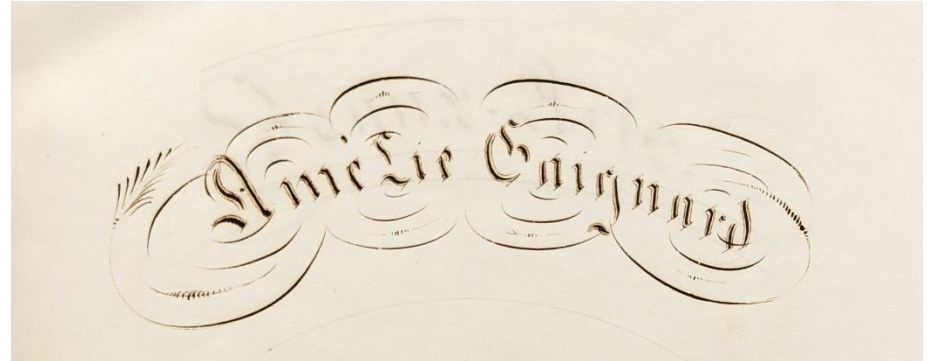 Amélie Gaignard